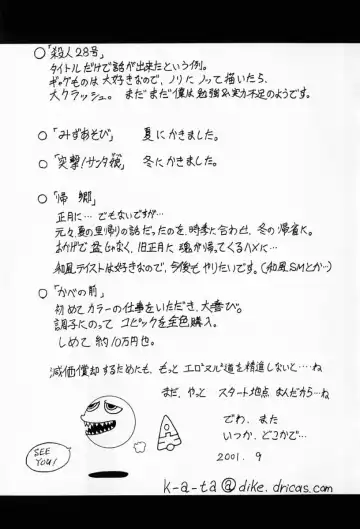 ○「殺人28号」
タイトルだけで話が出来たという例。
ギャグものは大好きなので、ノリにノって描いたら、
大クラッシュ。まだまだ僕は勉強&実力不足のようです。
○「みずあそび」 夏にかきました。
○「突撃!サンタ 」 冬にかきました。
○「帰郷」
正月に…でもないですが…
元々、夏の里帰りの話だったのを、時季に合わせ、冬の帰省に。
おかげで盆じゃなく、旧正月に魂が帰ってくるハメに…
和風テイストは好きなので、今後もやりたいです。(和風SMとか…)
○「かべの前」
初めてカラーの仕事をいただき、大喜び。
調子にのってコピックを全色購入。
しめて約10万円也。
減価償却するためにも、もっとエロマンガ道を精進しないと…ね
まだ、やっとスタート地点なんだから…ね
でわ、また
いつか、どこかで…
2001. 9
SEE YOU!
k-a-ta@dike.dricas.com